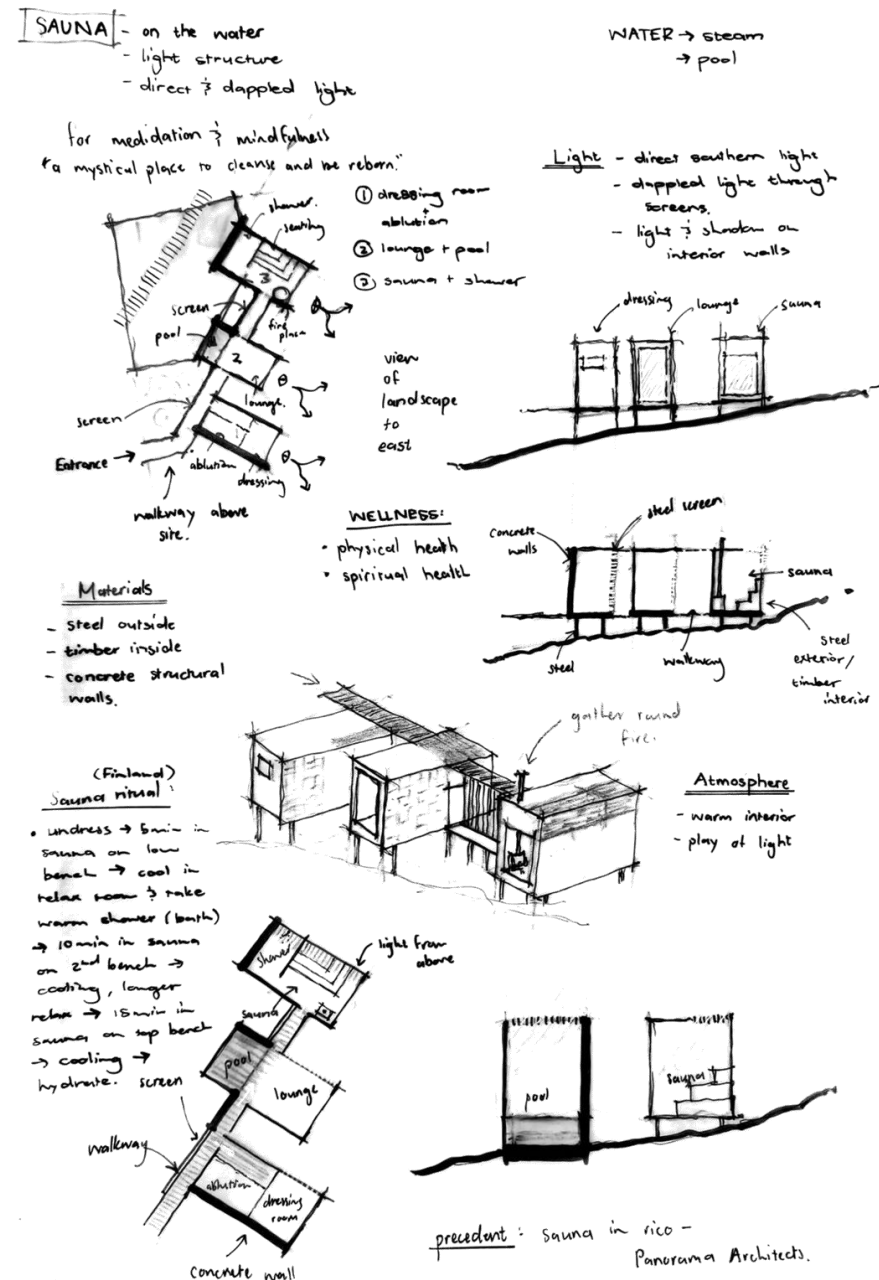 SAUNA
- on the water
- light structure
- direct & dappled light
WATER → steam
→ pool
for medidation & mindfulness
"a mystical place to cleanse and be reborn."
Light - direct southern light
- dappled light through
screens.
- light & shadow on
interior walls
① dressing room
+
ablution
③ lounge + pool
② sauna + shower
shower.
seating
3
screen
fire
place
pool
2
lounge.
screen
Entrance →
ablution
dressing
walkway above
site.
view
of
landscape
to
east
dressing
lounge
sauna
WELLNESS:
• physical health
• spiritual health
steel screen
concrete
walls
sauna
steel
walkway
steel
exterior/
timber
interior
Materials
- steel outside
- timber inside
- concrete structural
walls.
gather round
fire.
Atmosphere
- warm interior
- play of light
(Finland)
Sauna ritual:
• undress → 5min in
sauna on low
bench → cool in
relax room & take
warm shower (bath)
→ 10min in sauna
on 2nd bench →
cooling, longer
relax → 15min in
sauna on top bench
→ cooling →
hydrate.
screen
light from
above
shower
sauna
pool
lounge
walkway
ablution
dressing
room
concrete wall
pool
sauna
precedent: Sauna in rico -
Panorama Architects.